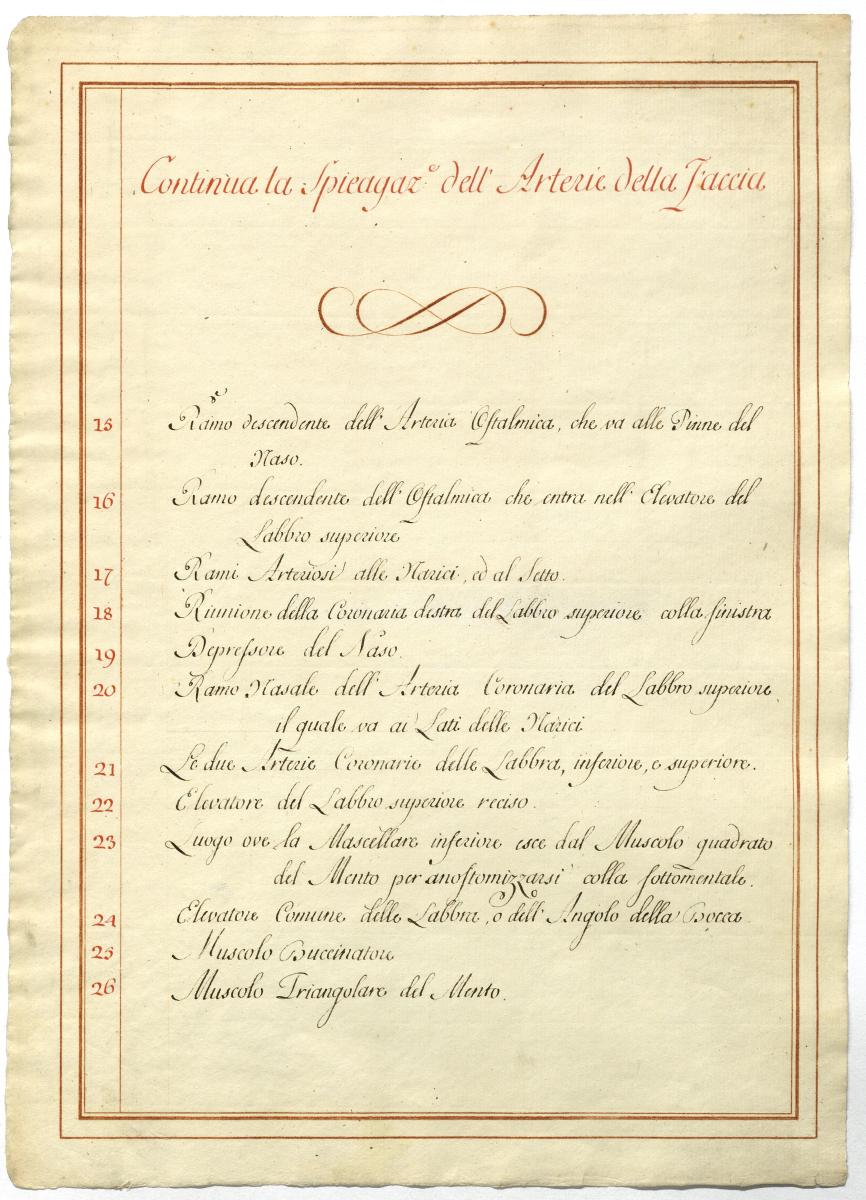 Continua la Spieagaz.e dell' Arterie della Faccia
15 Ramo descendente dell' Arteria Oftalmica, che va alle Pinne del
Naso.
16 Ramo descendente dell' Oftalmica che entra nell' Elevatore del
Labbro superiore
17 Rami Arteriosi alle Narici, ed al Setto.
18 Riunione della Coronaria destra del Labbro superiore colla sinistra
19 Depressore del Naso.
20 Ramo Nasale dell' Arteria Coronaria del Labbro superiore,
il quale va ai Lati delle Narici
21 Le due Arterie Coronarie delle Labbra, inferiore, e superiore.
22 Elevatore del Labbro superiore reciso.
23 Luogo ove la Mascellare inferiore esce dal Muscolo quadrato
del Mento per anostomizzarsi colla sottomentale.
24 Elevatore Comune delle Labbra, o dell' Angolo della Bocca
25 Muscolo Buccinatore
26 Muscolo Triangolare del Mento.